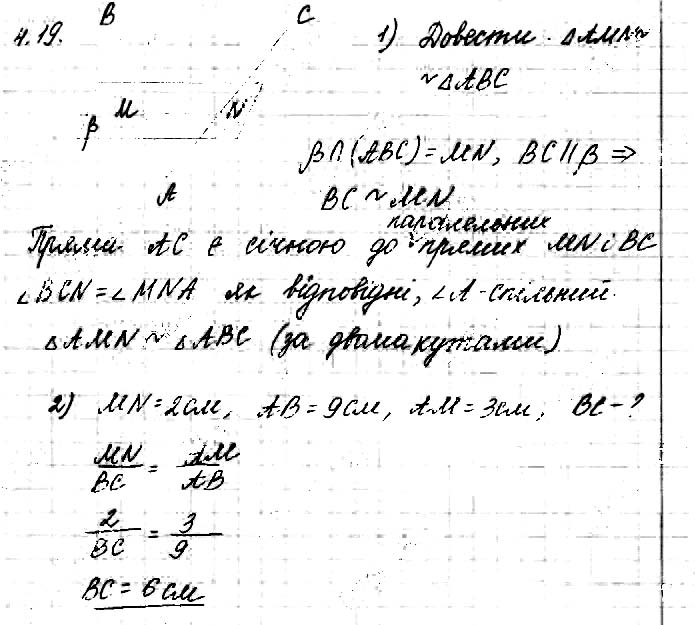 4.19.
B
C
M
N
β
A
1) Довести ΔAMN ~
~ ΔABC
β∩(ABC) = MN, BC || β ⇒
BC ~ MN
паралельних
Пряма AC є січною до прямих MN і BC
∠BCN = ∠MNA як відповідні, ∠A - спільний.
ΔAMN ~ ΔABC (за двома кутами)
2) MN = 2см, AB = 9см, AM = 3см, BC - ?
MN/BC = AM/AB
2/BC = 3/9
BC = 6 см